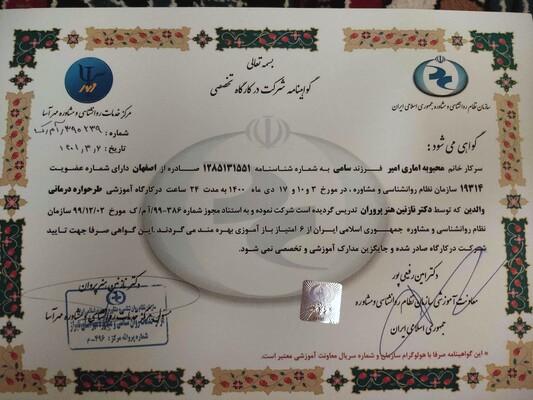 بسمه تعالی
گواهینامه شرکت در کارگاه تخصصی
سازمان نظام روانشناسی و مشاوره جمهوری اسلامی ایران
مرکز خدمات روانشناسی و مشاوره مهر آسا
شماره: ۳۹۵۲۳۹/آم/ک
تاریخ: ۱۴۰۱/۳/۷
گواهی می شود:
سرکار خانم محبوبه اماری امیر فرزند سامی به شماره شناسنامه ۱۲۸۵۱۳۱۵۵۱ صادره از اصفهان دارای شماره عضویت
۱۹۳۱۴ سازمان نظام روانشناسی و مشاوره، در مورخ ۳ و ۱۰ و ۱۷ دی ماه ۱۴۰۰ به مدت ۲۴ ساعت در کارگاه آموزشی طرحواره درمانی
والدین که توسط دکتر نازنین هنر پروران تدریس گردیده است شرکت نموده و به استناد مجوز شماره ۹۹-۳۸۶/آم/ک مورخ ۹۹/۱۲/۰۲ سازمان
نظام روانشناسی و مشاوره جمهوری اسلامی ایران از ۶ امتیاز باز آموزی بهره مند می گردند. این گواهی صرفا جهت تایید
شرکت در کارگاه صادر شده و جایگزین مدارک آموزشی و تخصصی نمی شود.
دکتر امین رفیعی پور
معاونت آموزشی سازمان نظام روانشناسی و مشاوره
جمهوری اسلامی ایران
دکتر نازنین هنر پروران
مرکز خدمات روانشناسی و مشاوره مهر آسا
شماره پروانه مرکز: ۴۹۶-م
* این گواهینامه صرفا با هولوگرام سازمان و شماره سریال معاونت آموزشی معتبر است.